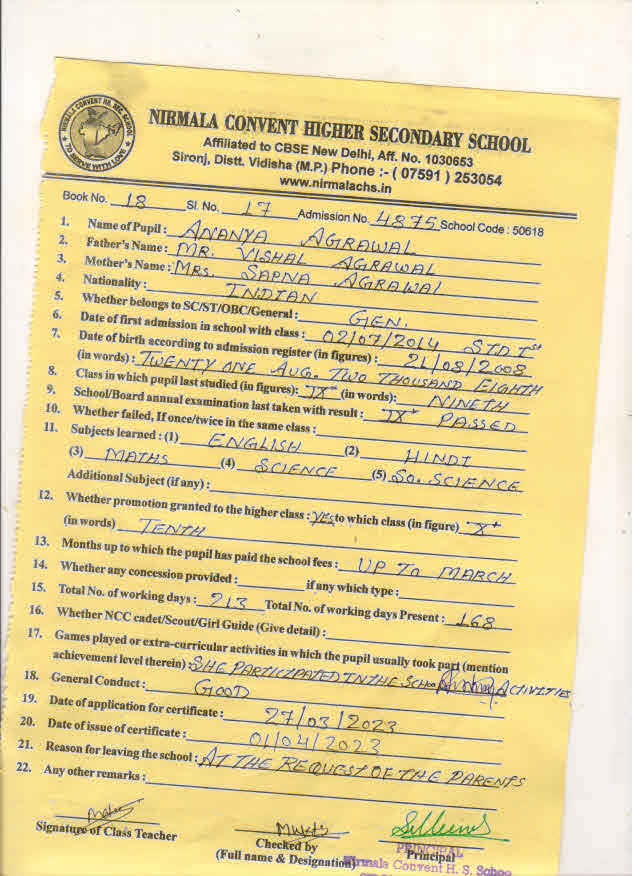 NIRMALA CONVENT HR. SEC. SCHOOL
TO SERVE WITH LOVE
NIRMALA CONVENT HIGHER SECONDARY SCHOOL
Affiliated to CBSE New Delhi, Aff. No. 1030653
Sironj, Distt. Vidisha (M.P.) Phone :- ( 07591 ) 253054
www.nirmalachs.in
Book No. 18 Sl. No. 17 Admission No. 4875 School Code : 50618
1. Name of Pupil : ANANYA AGRAWAL
2. Father's Name : MR. VISHAL AGRAWAL
3. Mother's Name : MRS. SAPNA AGRAWAL
4. Nationality : INDIAN
5. Whether belongs to SC/ST/OBC/General : GEN.
6. Date of first admission in school with class : 02/07/2014 STD Ist
7. Date of birth according to admission register (in figures) : 21/08/2008
(in words) : TWENTY ONE AUG. TWO THOUSAND EIGHTH
8. Class in which pupil last studied (in figures): IX (in words) : NINETH
9. School/Board annual examination last taken with result : IX PASSED
10. Whether failed, If once/twice in the same class :
11. Subjects learned : (1) ENGLISH (2) HINDI
(3) MATHS (4) SCIENCE (5) SO. SCIENCE
Additional Subject (if any) :
12. Whether promotion granted to the higher class : YES to which class (in figure) X
(in words) TENTH
13. Months up to which the pupil has paid the school fees : UP TO MARCH
14. Whether any concession provided : if any which type :
15. Total No. of working days : 213 Total No. of working days Present : 168
16. Whether NCC cadet/Scout/Girl Guide (Give detail) :
17. Games played or extra-curricular activities in which the pupil usually took part (mention
achievement level therein) : SHE PARTICIPATED IN THE SCHOOL ACTIVITIES
18. General Conduct : GOOD
19. Date of application for certificate : 27/03/2023
20. Date of issue of certificate : 01/04/2023
21. Reason for leaving the school : AT THE REQUEST OF THE PARENTS
22. Any other remarks :
Signature of Class Teacher
Checked by
(Full name & Designation)
Principal
PRINCIPAL
Nirmala Convent H. S. School